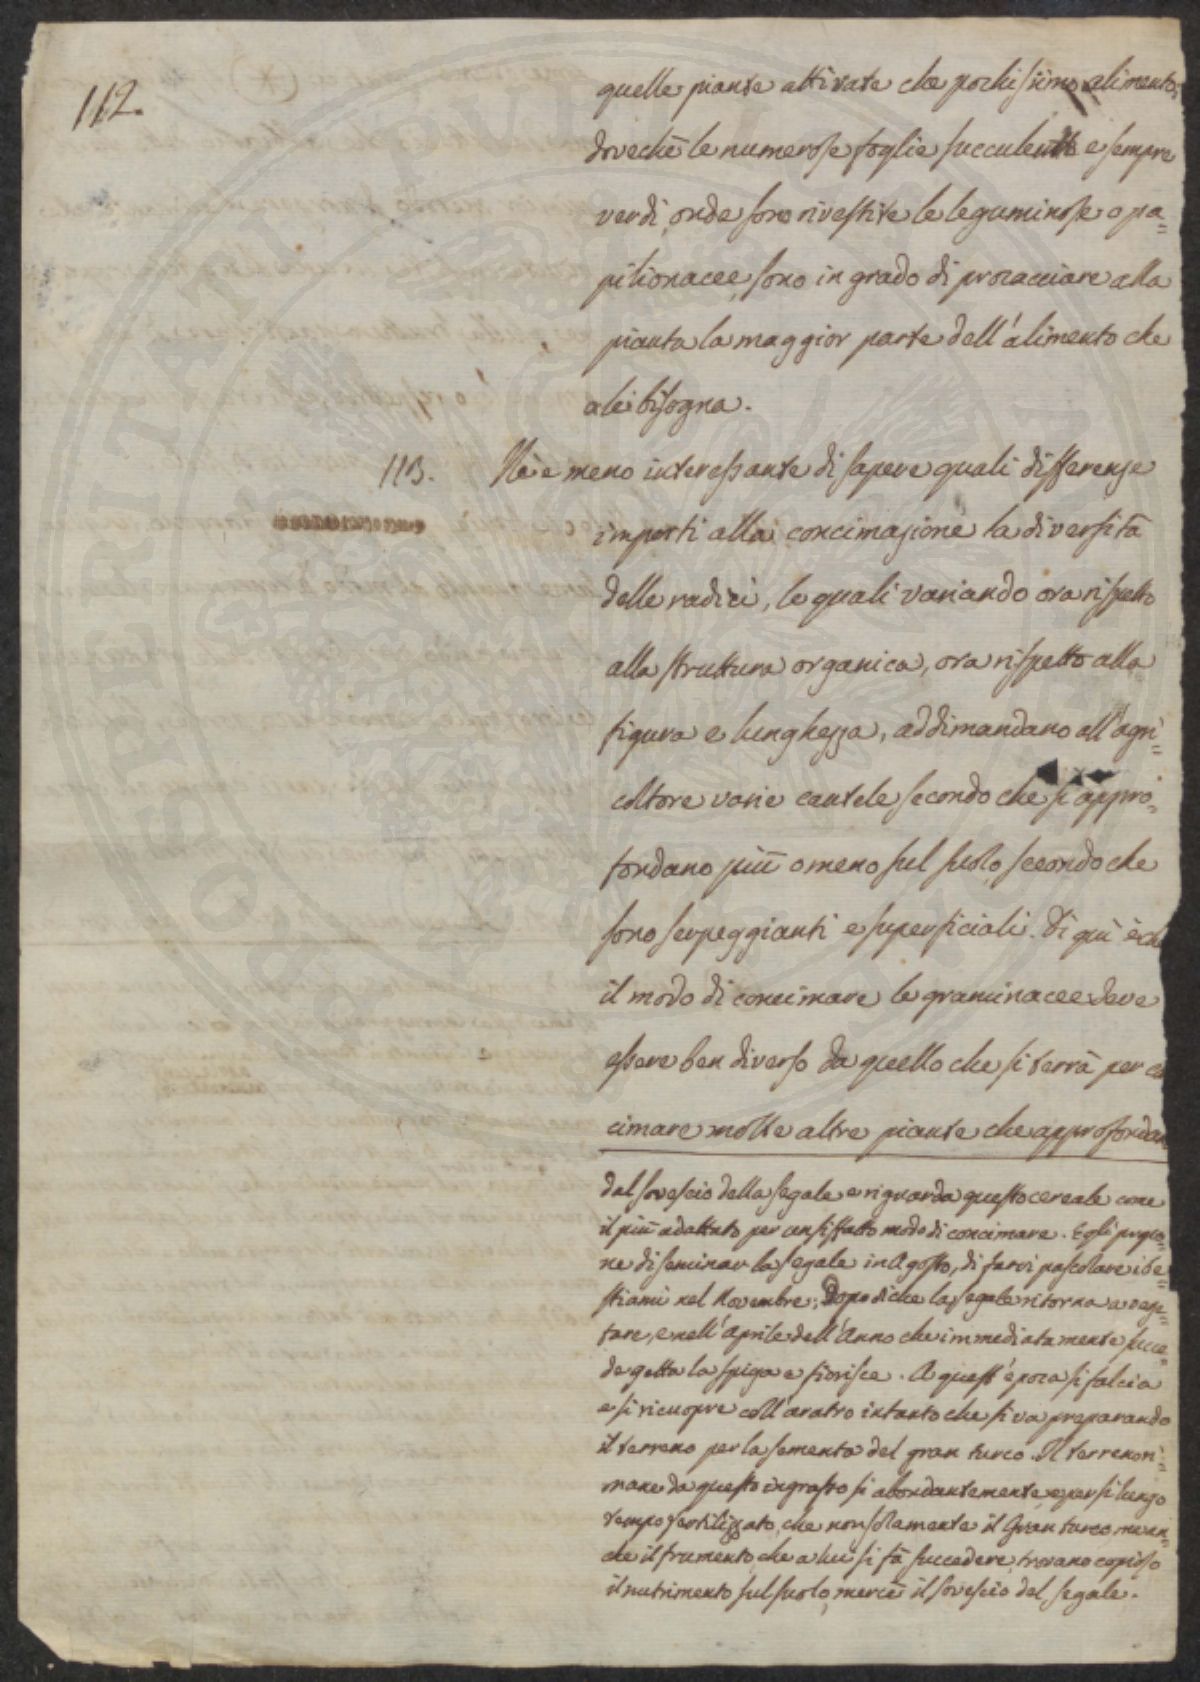 112.
quelle piante attivate che pochissimo alimento,
dovechè le numerose foglie succulente e sempre
verdi, onde sono rivestite le leguminose o pa=
pilionacee, sono in grado di procacciare alla
pianta la maggior parte dell'alimento che
a lei bisogna.
113. Nè è meno interessante di sapere quali differenze
importi alla concimazione la diversità
delle radici, le quali variando ora rispetto
alla struttura organica, ora rispetto alla
figura e lunghezza, addimandano all'agri=
coltore varie cautele secondo che si appro=
fondano più o meno sul suolo, secondo che
sono serpeggianti e superficiali. Di qui è che
il modo di concimare le graminacee deve
essere ben diverso da quello che si terrà per
cimare molte altre piante che approfondan
dal sovescio della segale e riguarda questo cereale come
il più adattato per un siffatto modo di concimare. Egli propo=
ne di seminar la segale in Agosto, di farvi pascolare i be=
stiami nel Novembre; Dopo di che la segale ritorna a vege=
tare, e nell'Aprile dell'Anno che immediatamente succe=
de getta la spiga e fiorisce. A quest'epoca si falcia
e si ricuopre coll'aratro intanto che si va preparando
il terreno per la sementa del gran turco. Il terreno ri=
mane da questo ingrasso sì abondantemente, e per sì lungo
tempo fertilizzato, che non solamente il Gran turco, ma an=
che il frumento, che a lui si fà succedere, trovano copioso
il nutrimento sul suolo, mercè il sovescio del segale.